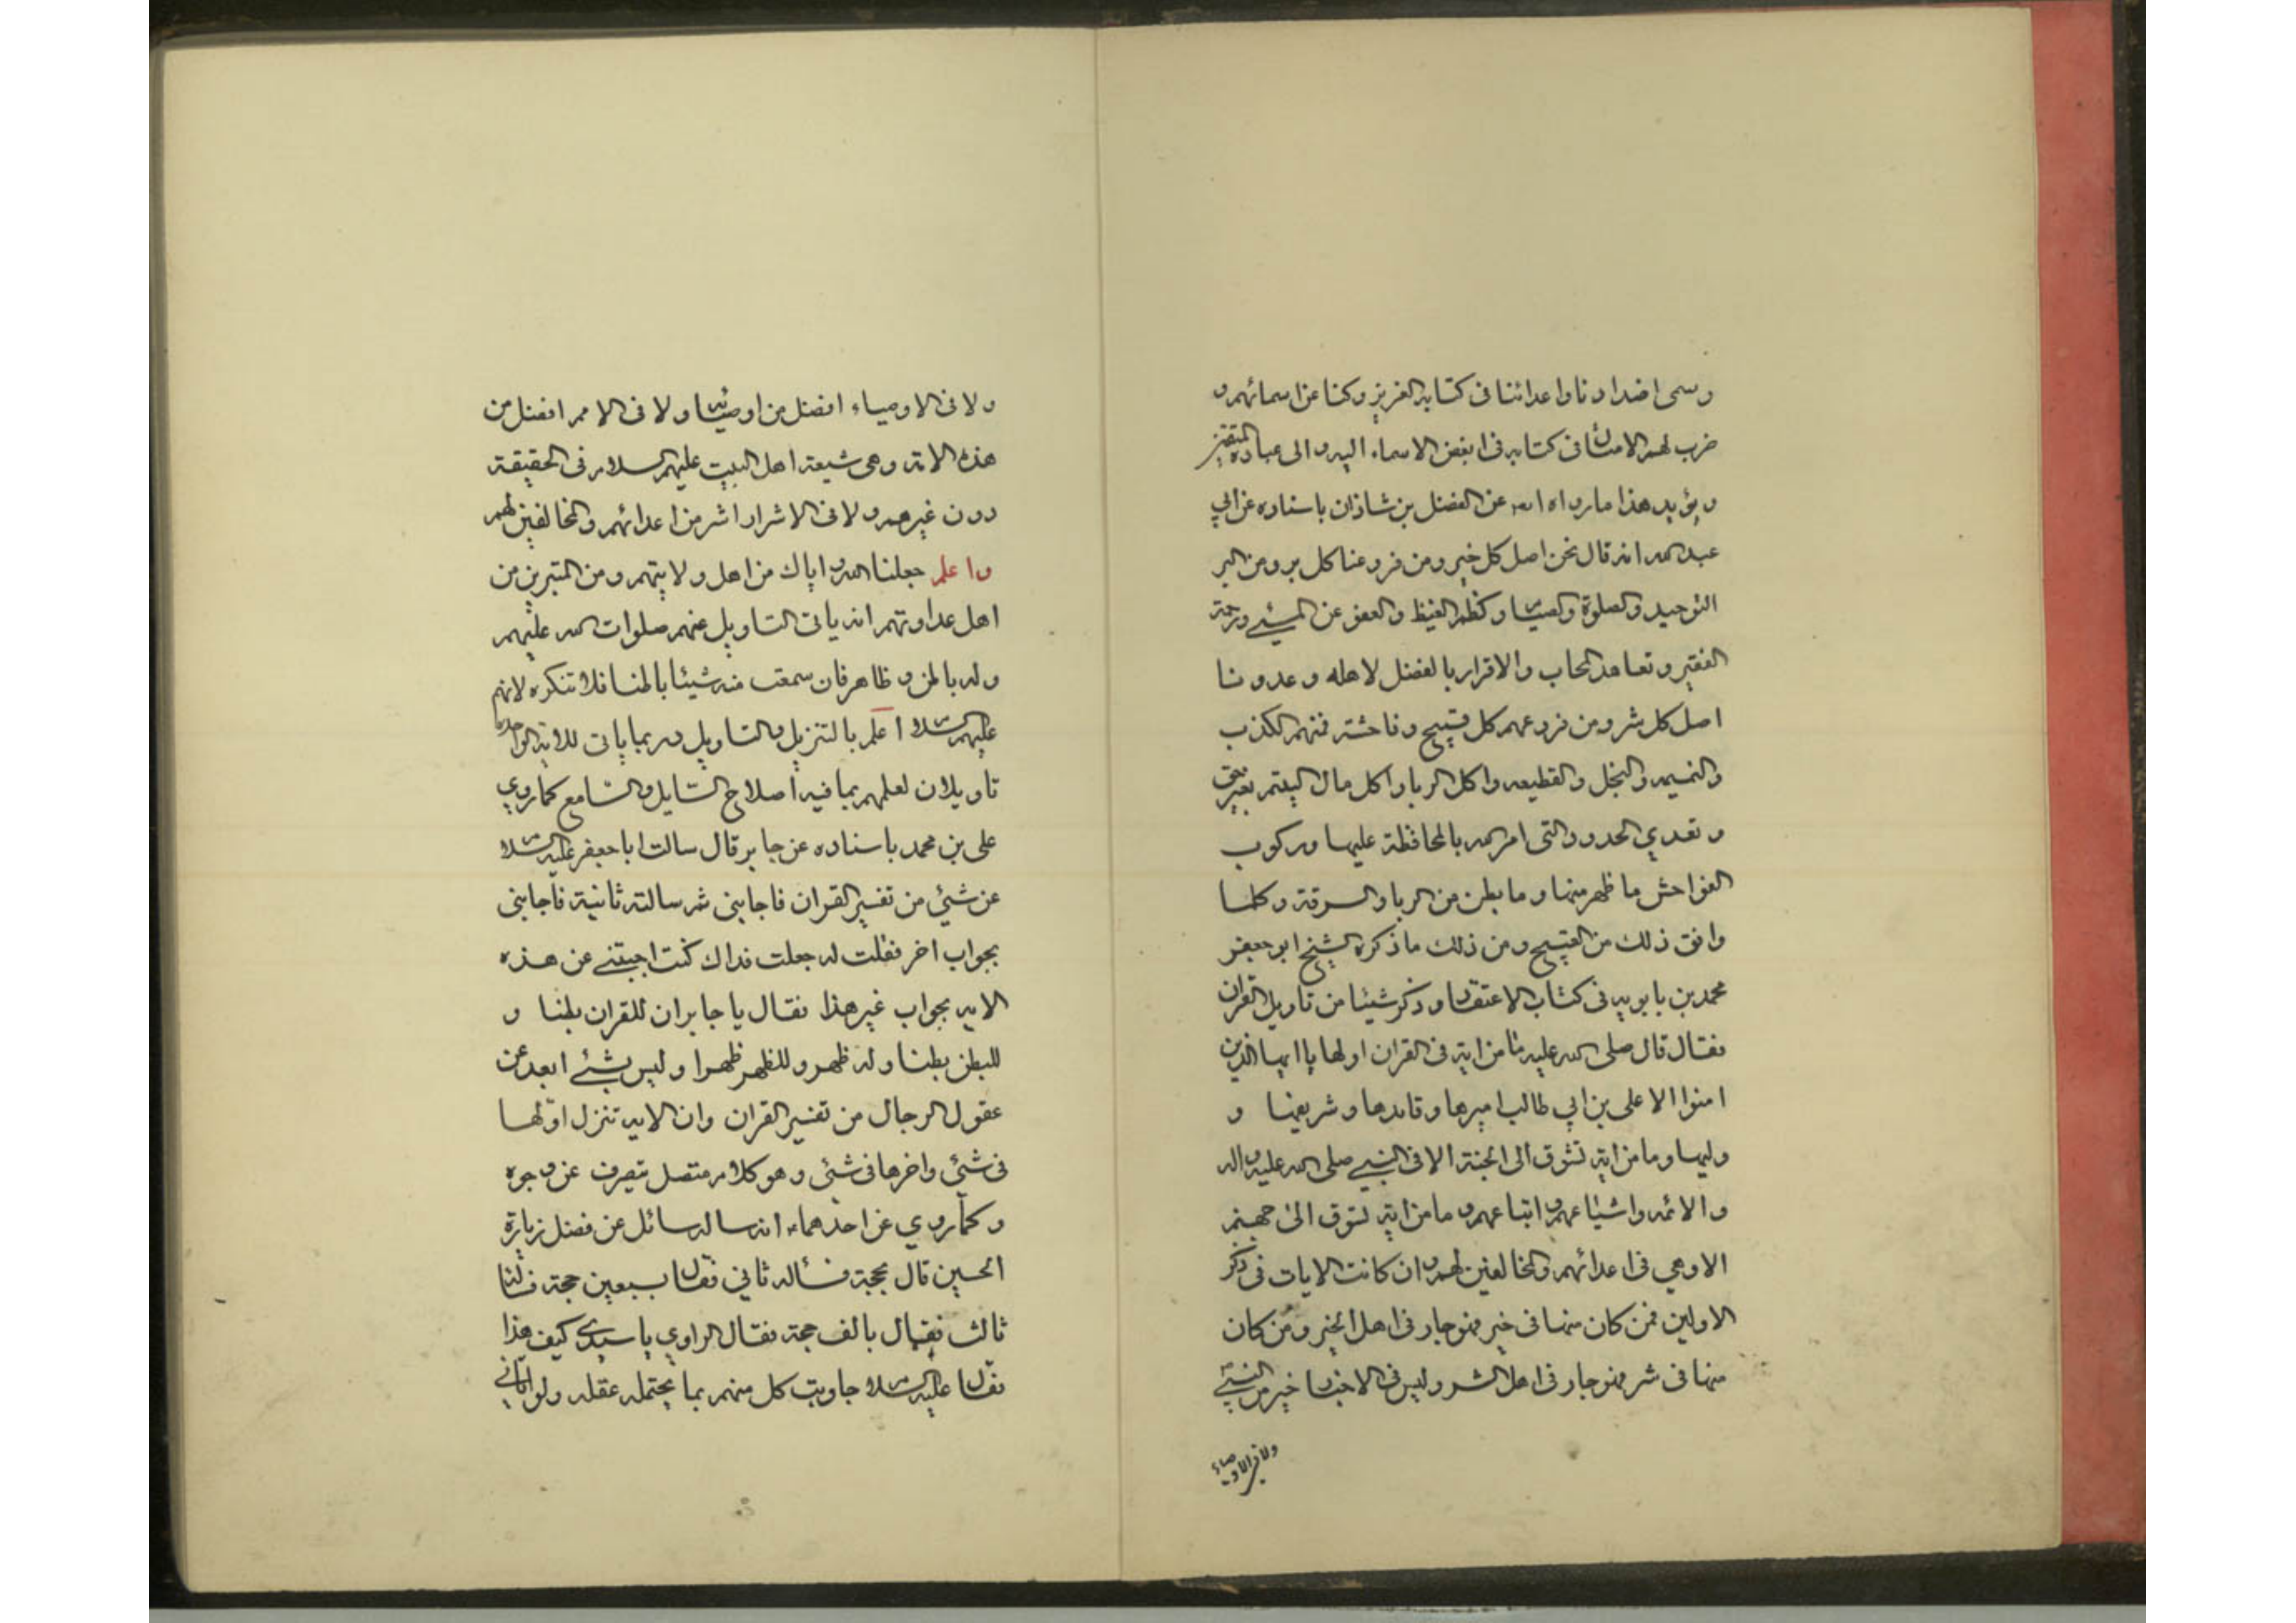 وسمى اضدادنا واعدائنا فى كتابه العزيز وكنا عن اسمائهم و
ضرب لهم الامثال فى كتابه فى ابغض الاسماء اليه والى عباده المتقين
ويؤيد هذا ما رواه ايضا عن الفضل بن شاذان باسناده عن ابي
عبد الله انه قال نحن اصل كل خير ومن فروعنا كل بر ومن البر
التوحيد والصلوة والصيام وكظم الغيظ والعفو عن المسيئ ورحمة
الفقير وتعاهد الجار والاقرار بالفضل لاهله وعدونا
اصل كل شر ومن فروعهم كل قبيح وفاحشة فمنهم الكذب
والنميمه والبخل والقطيعه واكل الربا واكل مال اليتيم بغير حق
وتعدي الحدود التى امر الله بالمحافظة عليها وركوب
الفواحش ما ظهر منها وما بطن من الربا والسرقة وكلما
وافق ذلك من القبيح ومن ذلك ما ذكره الشيخ ابو جعفر
محمد بن بابويه فى كتاب الاعتقاد وذكر شيئا من تاويل القران
فقال قال صلى الله عليه ما من اية فى القران اولها يا ايها الذين
امنوا الا على بن ابي طالب اميرها وقايدها وشريفها و
وليها وما من اية تشوق الى الجنة الا فى النبي صلى الله عليه واله
والائمه واشياعهم واتباعهم وما من اية تسوق الى جهنم
الا وهي فى اعدائهم والمخالفين لهم وان كانت الايات فى ذكر
الاولين فمن كان منها فى خير فهو جار فى اهل الخير ومن كان
منها فى شر فهو جار فى اهل الشر وليس فى الاخيار خير من النبي
ولا فى الاوصياء
ولا فى الاوصياء افضل من اوصيائه ولا فى الامم افضل من
هذه الامة وهى شيعة اهل البيت عليهم السلام فى الحقيقة
دون غيرهم ولا فى الاشرار اشر من اعدائهم والمخالفين لهم
واعلم جعلنا الله واياك من اهل ولايتهم ومن المتبرين من
اهل عداوتهم انه ياتى التاويل عنهم صلوات الله عليهم
وله باطن وظاهر فان سمعت منه شيئا باطنا فلا تنكره لانهم
عليهم السلام اعلم بالتنزيل والتاويل وربما ياتى للاية الواحدة
تاويلان لعلمهم بما فيه اصلاح السايل والسامع كما روي
على بن محمد باسناده عن جابر قال سالت ابا جعفر عليه السلام
عن شئ من تفسير القران فاجابنى ثم سالته ثانية فاجابنى
بجواب اخر فقلت له جعلت فداك كنت اجبتنى عن هذه
الايه بجواب غير هذا فقال يا جابر ان للقران بطنا و
للبطن بطنا وله ظهر وللظهر ظهرا وليس شئ ابعد عن
عقول الرجال من تفسير القران وان الايه تنزل اولها
فى شئ واخرها فى شئ وهو كلام متصل يتصرف عن وجوه
وكما روي عن احدهما انه ساله سائل عن فضل زيارة
الحسين قال بحجة فسأله ثاني فقال سبعين حجة فسأله
ثالث فقال بالف حجة فقال الراوي يا سيدي كيف هذا
فقال عليه السلام جاوبت كل منهم بما يحتمله عقله ولو اتانى